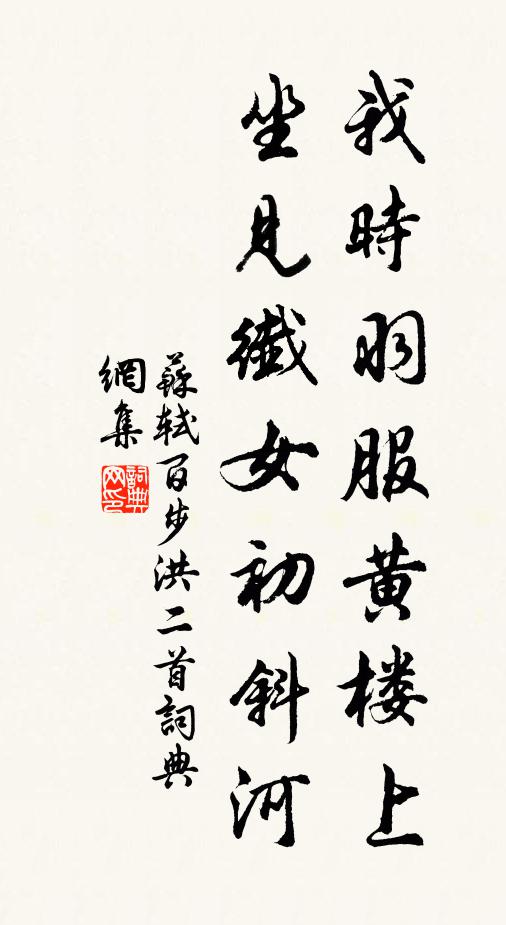 我時羽服黄楼上
坐見纖女初斜河
蘇軾百步洪二首詞典
網集
詞典網印